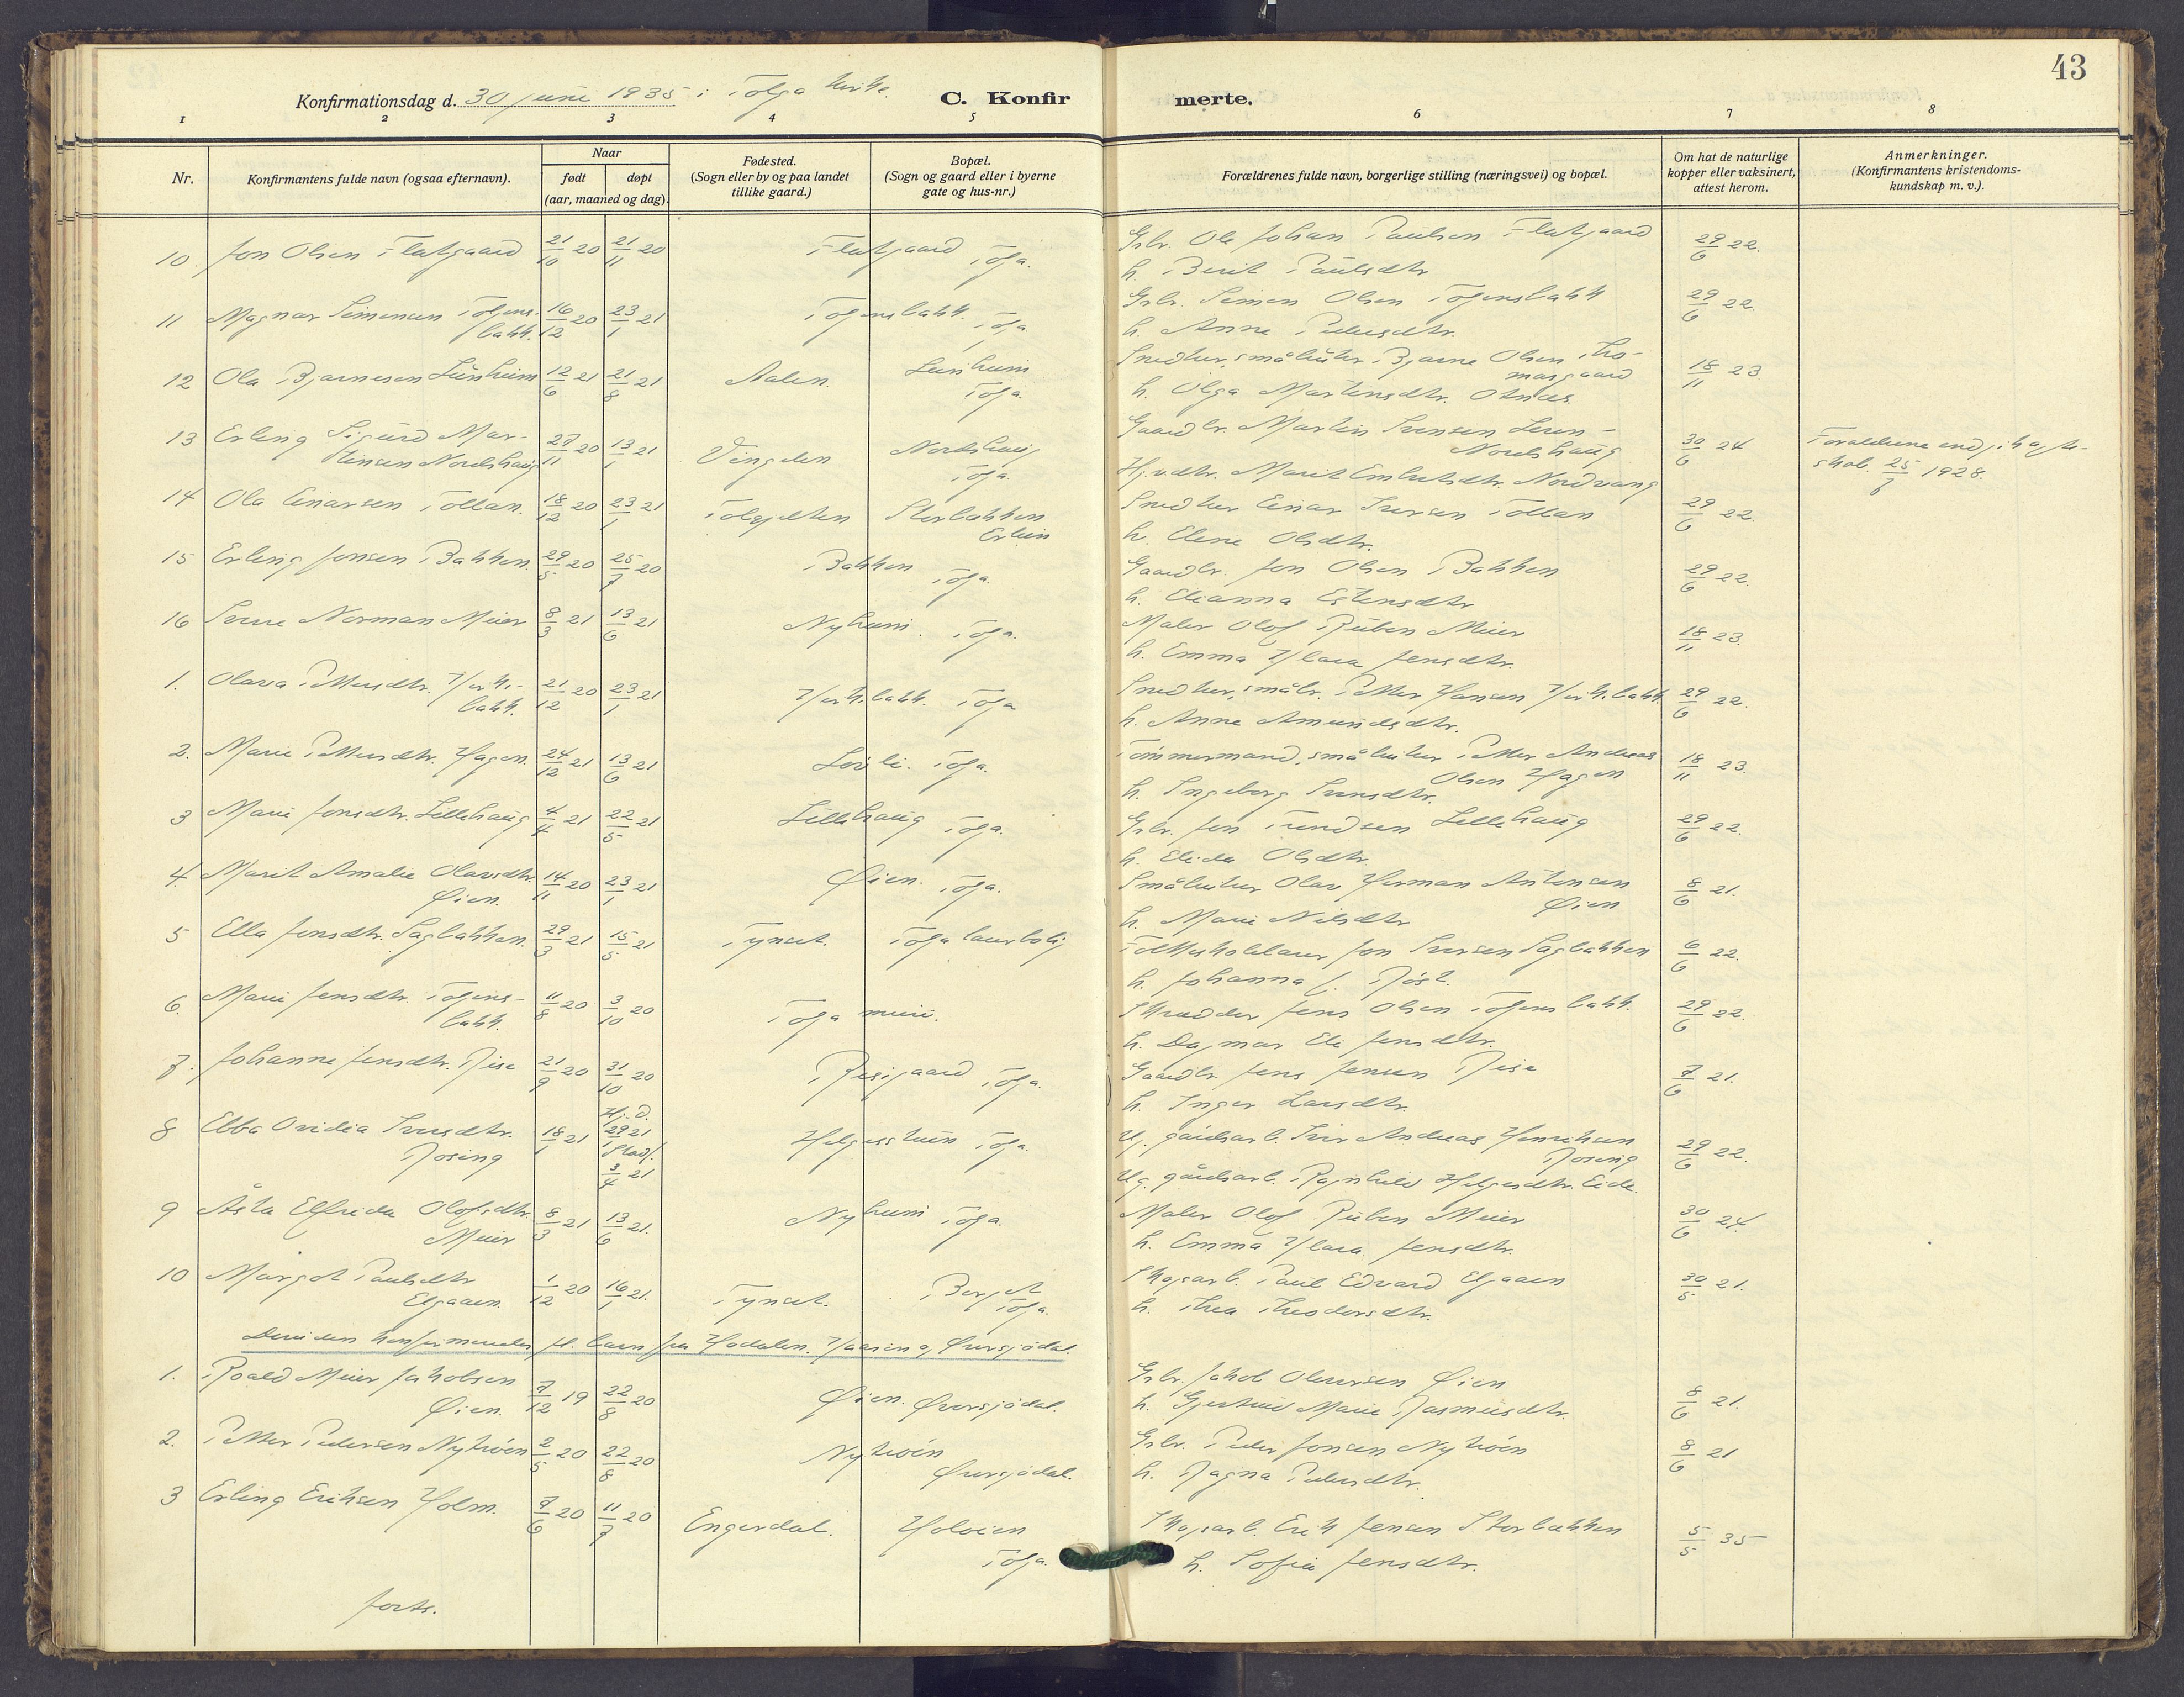 43
Konfirmationsdag d. 30 juni 1935 i Tolga kirke.
C. Konfirmerte.
1 2 3 4 5 6 7 8
Nr.
Konfirmantens fulde navn (ogsaa efternavn).
Naar
født døpt
(aar, maaned og dag).
Fødested.
(Sogn eller by og paa landet
tillike gaard.)
Bopæl.
(Sogn og gaard eller i byerne
gate og hus-nr.)
Forældrenes fulde navn, borgerlige stilling (næringsvei) og bopæl.
Om hat de naturlige
kopper eller vaksinert,
attest herom.
Anmerkninger.
(Konfirmantens kristendoms-
kundskap m. v.).
10 Jon Olsen Flatgaard 21/10 20 21/11 20 Flatgaard Tolga. Grbr. Ole Johan Paulsen Flatgaard 29/6 22.
h. Berit Paulsdtr
11 Magnar Simensen Tolgens- 16/12 20 23/1 21 Tolgensbakk. Tolga. Grbr. Simen Olsen Tolgensbakk 29/6 22.
bakk. h. Anne Pedersdtr.
12 Ola Bjarnesen Lunheim 12/6 21 21/8 21 Aalen. Lunheim Snedker, småbruker Bjarne Olsen Tho- 18/11 23.
Tolga. masgaard
h. Olga Martensdtr. Otnes.
13 Erling Sigurd Mar- 27/11 20 13/1 21 Vingelen Nordshaug Gaardbr. Martin Svensen 30/6 24 Forældrene indgik ægte-
tinsen Nordshaug Tolga. Nordshaug skab. 25/6 1928.
Hj.v.dtr. Marit Embretsdtr. Nordvang
14 Ola Einarsen Tollan. 18/12 20 23/1 21 Storbakken Snedker Einar Iversen Tollan 29/6 22.
Erlien h. Elene Olsdtr.
15 Erling Jonsen Bakken. 29/5 20 25/7 20 Bakken Tolga. Gaardbr. Jon Olsen Bakken 29/6 22.
h. Elianna Estensdtr
16 Norman Meier 8/3 21 13/6 21 Nyheim. Tolga. Maler Olof Ruben Meier 18/11 23.
h. Emma Klara Jensdtr.
1. Olava Pettersdtr. Kirke- 21/12 20 23/1 21 Kirkebakk. Tolga Snedker, småbr. Petter Hansen Kirkebakk. 29/6 22.
bakk. h. Anne Amundsdtr.
2. Marie Pettersdtr. Hagen. 24/12 21 13/6 21 Lovli. Tolga. Tømmermand, småbruker Petter Andreas 18/11 23.
Olsen Hagen
h. Ingeborg Iversdtr.
3 Marie Jonsdtr. Lillehaug 4/4 21 22/5 21 Lillehaug Tolga. Grbr. Jon Trondsen Lillehaug 29/6 22.
h. Elida Olsdtr.
4. Marit Amalie Olavsdtr. 14/11 20 23/1 21 Øien. Tolga. Småbruker Olav Herman Antonsen 8/6 21.
Øien. Øien
h. Marie Nilsdtr
5 Ella Jonsdtr. Sagbakken. 29/3 21 15/5 21 Tynset. Tolga lærerbolig Folkeskolelærer Jon Iversen Sagbakken 6/6 22.
h. Johanna f. Røst.
6. Marie Jensdtr. Tolgens- 11/8 20 3/10 20 Tolga Skrædder Jens Olsen Tolgensbakk. 29/6 22.
bakk. h. Dagmar Eli Jensdtr.
7. Johanne Jensdtr. Rise 21/9 20 31/10 20 Risegaard Tolga. Gaardbr. Jens Jensen Rise 7/6 21.
h. Inger Larsdtr.
8 Ebba Ovidia Iversdtr. 18/1 21 Hj.d. 29/1 21 Stadf. 3/4 21 Helgesstuen Tolga. Ug. gårdsarb. Iver Andreas Henriksen 29/6 22.
Rosing Rosing
Ug. gårdsarb. Ragnhild Helgesdtr. Eide.
9 Åsta Elfrida Olofsdtr. 8/3 21 13/6 21. Nyheim Tolga. Maler Olof Ruben Meier 30/6 24.
Meier h. Emma Klara Jensdtr.
10 Margot Paulsdtr 1/12 20 16/1 21. Tynset. Berget Skogsarb. Paul Edvard Elgaaen 30/5 21.
Elgaaen. Tolga. h. Thea Theodorsdtr.
Desuden konfirmeredes fl. barn fra Hodalen. og Øversjødal.
1. Roald Meier Jakobsen 7/12 19 22/8 20 Øien. Øversjødal. Grbr. Jakob Olaussen Øien 8/6 21.
Øien. h. Gjertrud Marie Rasmusdtr.
2. Petter Pedersen Nytrøen 2/5 20 22/8 20 Nytrøen Grbr. Peder Jonsen Nytrøen 8/6 21
Øversjødal. h. Ragna Pedersdtr.
3 Erling Eriksen Holm. 7/6 20 11/7 20 Engerdal. Holøien Skogsarb. Erik Jensen Storbakken 5/5 35
Tolga. h. Sofie Jensdtr.
forts.